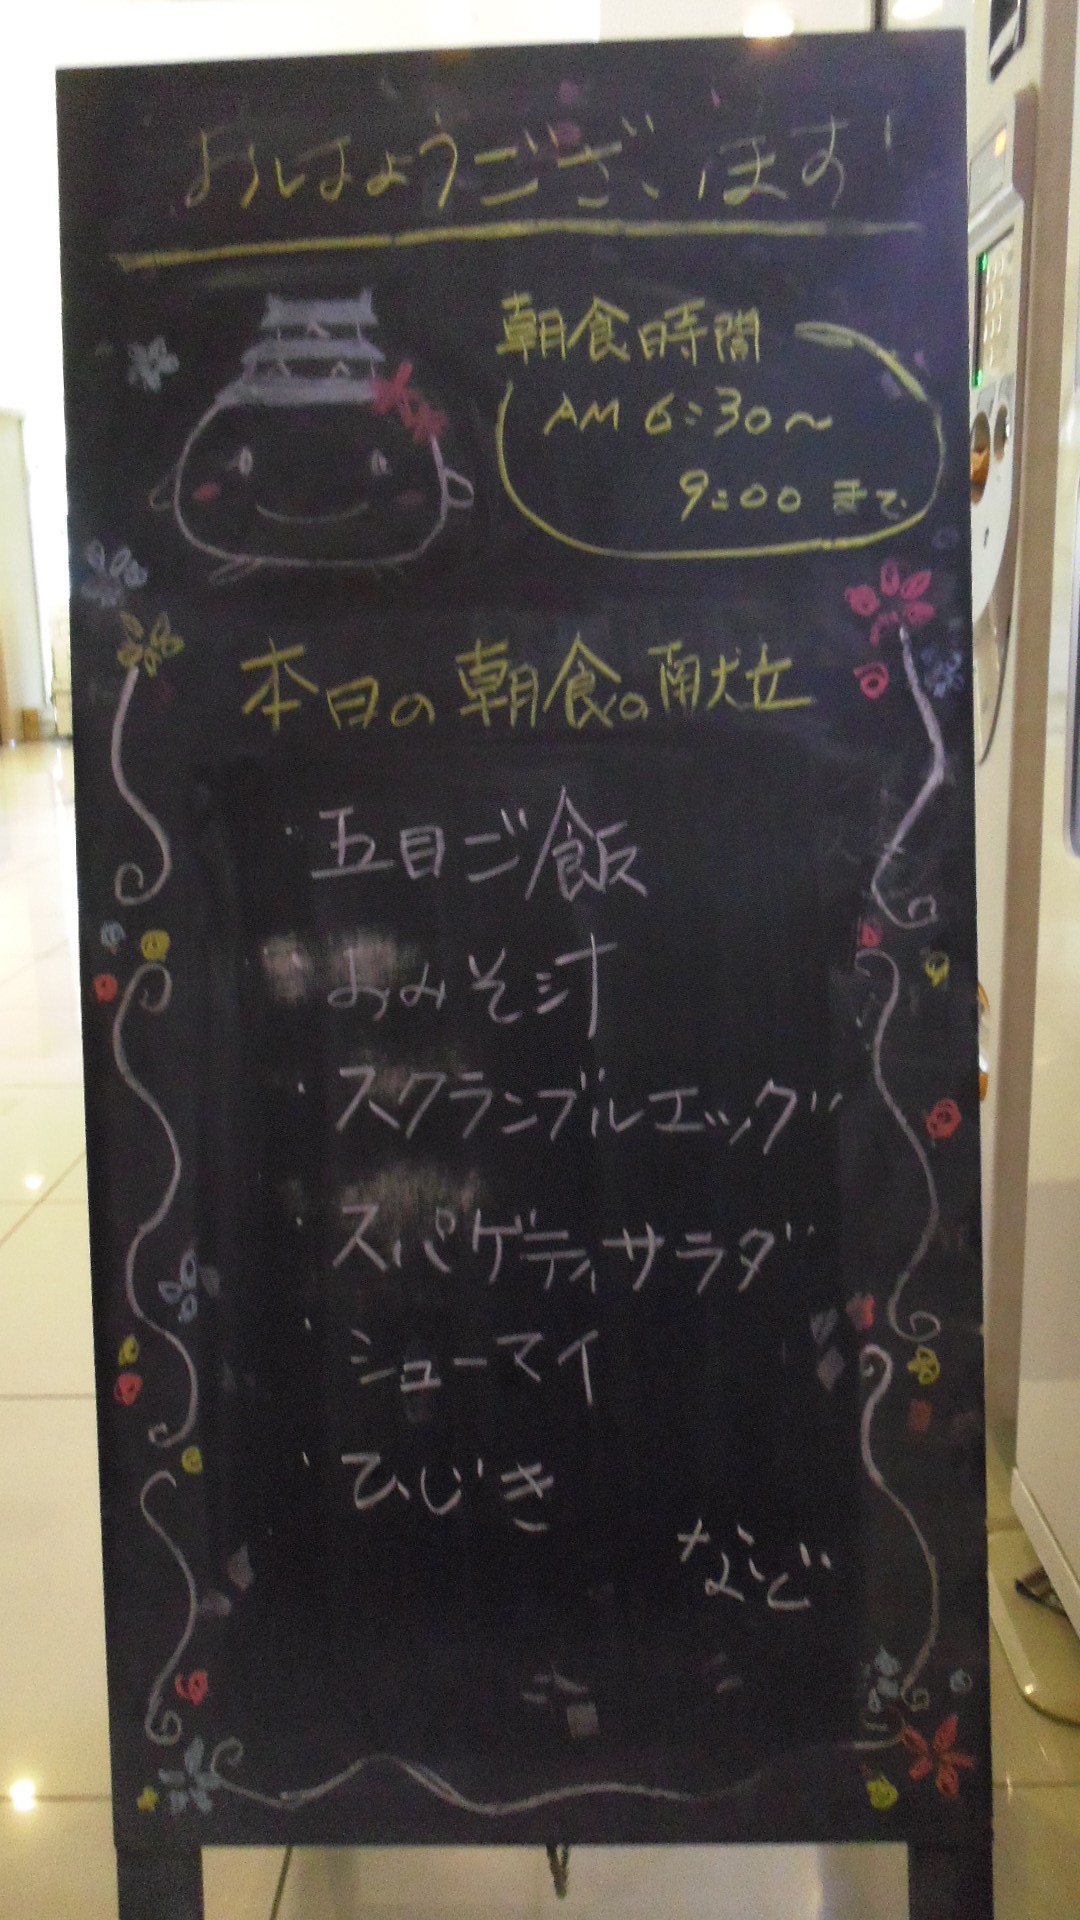 おはようございます!
朝食時間
AM 6:30〜
9:00 まで
本日の朝食の献立
・五目ご飯
おみそ汁
・スクランブルエッグ
・スパゲティサラダ
・シューマイ
・ひじき
など